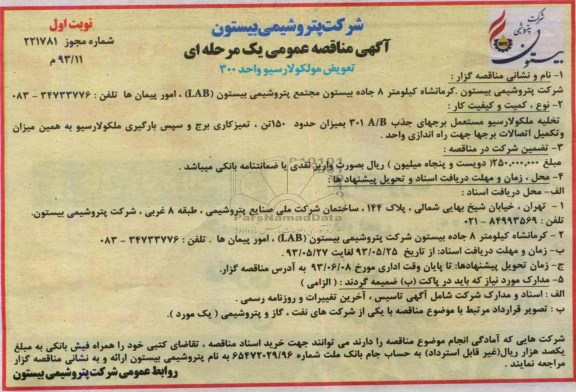 نوبت اول
شماره مجوز ۲۲۱۷۸۱
۹۳/۱۱ م
شرکت پتروشیمی بیستون
آگهی مناقصه عمومی یک مرحله ای
تعویض مولکولارسیو واحد ۳۰۰
شرکت پتروشیمی
بیستون
۱- نام و نشانی مناقصه گزار :
شرکت پتروشیمی بیستون .کرمانشاه کیلومتر ۸ جاده بیستون مجتمع پتروشیمی بیستون (LAB) ، امور پیمان ها تلفن : ۳۴۷۳۳۷۷۶ - ۰۸۳
۲- نوع ، کمیت و کیفیت کار :
تخلیه ملکولارسیو مستعمل برجهای جذب ۳۰۱ A/B بمیزان حدود ۱۵۰تن ، تمیزکاری برج و سپس بارگیری ملکولارسیو به همین میزان
وتکمیل اتصالات برجها جهت راه اندازی واحد .
۳- تضمین شرکت در مناقصه :
مبلغ ۲۵۰,۰۰۰,۰۰۰( دویست و پنجاه میلیون ) ریال بصورت واریز نقدی یا ضمانتنامه بانکی میباشد .
۴- محل ، زمان و مهلت دریافت اسناد و تحویل پیشنهاد ها :
الف - محل دریافت اسناد :
۱- تهران ، خیابان شیخ بهایی شمالی ، پلاک ۱۴۴ ، ساختمان شرکت ملی صنایع پتروشیمی ، طبقه ۸ غربی ، شرکت پتروشیمی بیستون.
تلفن : ۸۴۹۹۳۵۶۹ - ۰۲۱
۲- کرمانشاه کیلومتر ۸ جاده بیستون شرکت پتروشیمی بیستون (LAB) ، امور پیمان ها . تلفن : ۳۴۷۳۳۷۷۶ - ۰۸۳
ب- زمان و مهلت دریافت اسناد: از تاریخ ۹۳/۰۵/۲۵ لغایت ۹۳/۰۵/۲۷
ج- زمان تحویل پیشنهادها: تا پایان وقت اداری مورخ ۹۳/۰۶/۰۸ به آدرس مناقصه گزار.
۵- مدارک مورد نیاز که باید در پاکت (ب) ضمیمه گردند : ( الزامی )
الف : اسناد و مدارک شرکت شامل آگهی تاسیس ، آخرین تغییرات و روزنامه رسمی .
ب : تصویر قرارداد مرتبط با موضوع مناقصه با یکی از شرکت های نفت ، گاز و پتروشیمی ( یک مورد ).
شرکت هایی که آمادگی انجام موضوع مناقصه را دارند می توانند جهت خرید اسناد مناقصه ، تقاضای کتبی خود را همراه فیش بانکی به مبلغ
یکصد هزار ریال(غیر قابل استرداد) به حساب جام بانک ملت شماره ۶۵۴۷۲۰۲۹/۹۶ به نام پتروشیمی بیستون ارائه و به نشانی مناقصه گزار
مراجعه نمایند .
روابط عمومی شرکت پتروشیمی بیستون
ParsNamadData